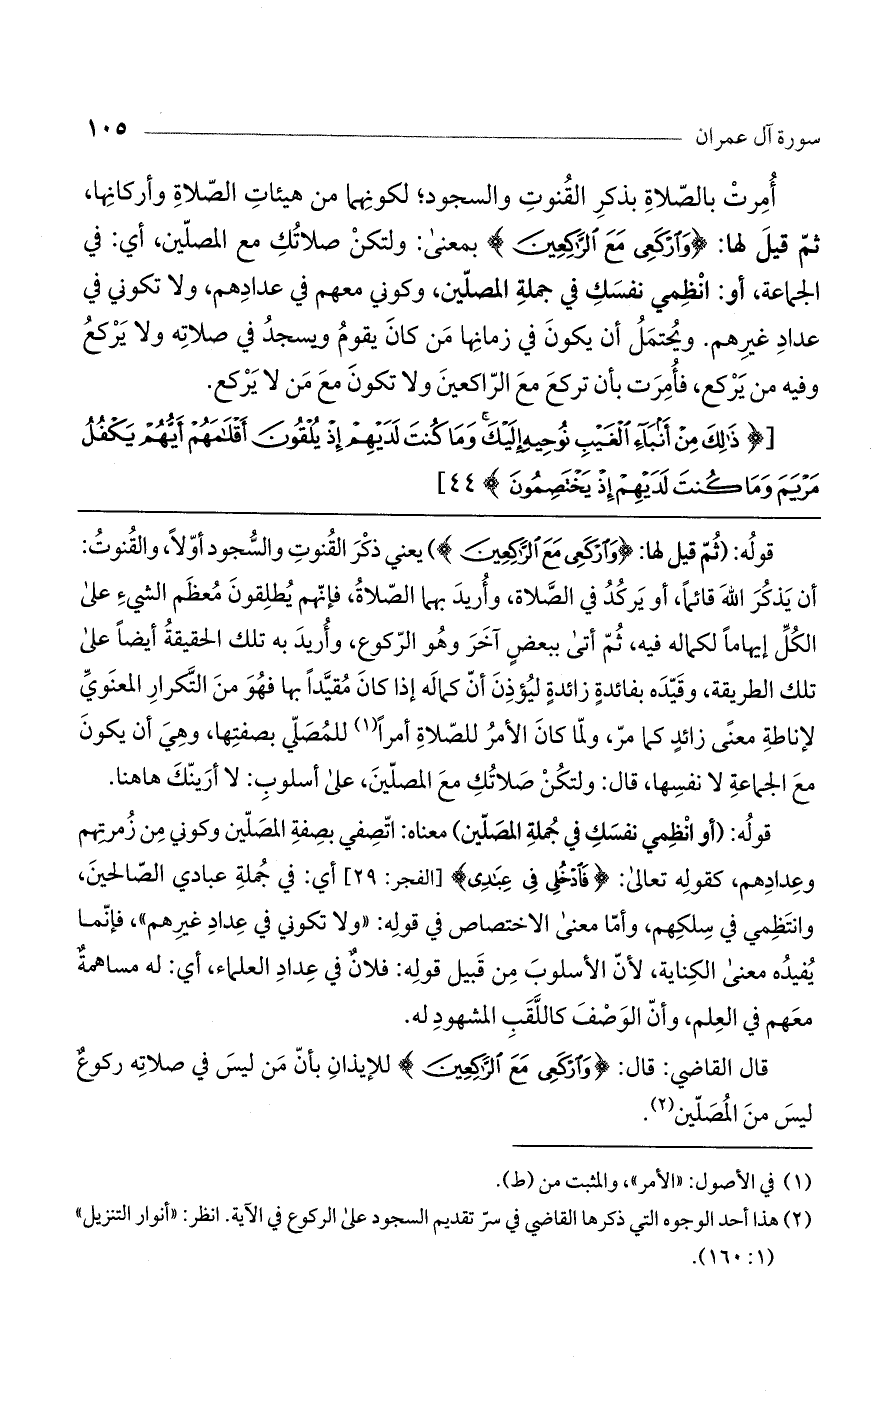 سورة آل عمران ١٠٥
أُمِرتْ بالصّلاةِ بذكرِ القُنوتِ والسجود؛ لكونِهما من هيئاتِ الصّلاةِ وأركانِها،
ثمّ قيلَ لها: ﴿وَٱرْكَعِى مَعَ ٱلرَّٰكِعِينَ﴾ بمعنىٰ: ولتكنْ صلاتُكِ مع المصلّين، أي: في
الجماعة، أو: انْظِمي نفسَكِ في جملةِ المصلّين، وكوني معهم في عدادِهم، ولا تكوني في
عدادِ غيرِهم. ويُحتمَلُ أن يكونَ في زمانِها مَن كانَ يقومُ ويسجدُ في صلاتِه ولا يَرْكعُ
وفيه من يَرْكع، فأُمِرَت بأن تركعَ معَ الرّاكعينَ ولا تكونَ معَ مَن لا يَرْكع.
[﴿ذَٰلِكَ مِنْ أَنۢبَآءِ ٱلْغَيْبِ نُوحِيهِ إِلَيْكَ ۚ وَمَا كُنتَ لَدَيْهِمْ إِذْ يُلْقُونَ أَقْلَٰمَهُمْ أَيُّهُمْ يَكْفُلُ
مَرْيَمَ وَمَا كُنتَ لَدَيْهِمْ إِذْ يَخْتَصِمُونَ﴾ ٤٤]
قولُه: (ثُمّ قيل لها: ﴿وَٱرْكَعِى مَعَ ٱلرَّٰكِعِينَ﴾) يعني ذكْرَ القُنوتِ والسُّجود أوّلاً، والقُنوتُ:
أن يَذكُرَ اللهَ قائماً، أو يَركُدُ في الصَّلاة، وأُريدَ بهما الصّلاةُ، فإنّهم يُطلِقونَ مُعظَم الشيءِ علىٰ
الكُلِّ إيهاماً لكماله فيه، ثُمّ أتىٰ ببعضٍ آخَرَ وهُو الرّكوع، وأُريدَ به تلك الحقيقةُ أيضاً علىٰ
تلك الطريقة، وقيّدَه بفائدةٍ زائدةٍ ليُؤذِنَ أنّ كمالَه إذا كانَ مُقيَّداً بها فهُوَ منَ التَّكرارِ المعنَويِّ
لإناطةِ معنًى زائدٍ كما مرّ، ولمّا كانَ الأمرُ للصّلاةِ أمراً(١) للمُصَلّي بصفتِها، وهِيَ أن يكونَ
معَ الجماعةِ لا نفسِها، قال: ولتكُنْ صَلاتُكِ معَ المصلّينَ، علىٰ أسلوبِ: لا أرَينّكَ هاهنا.
قولُه: (أو انْظِمي نفسَكِ في جُملةِ المصَلّين) معناه: اتّصِفي بصِفةِ المصَلّين وكوني مِن زُمرتِهم
وعِدادِهم، كقولِه تعالىٰ: ﴿فَٱدْخُلِى فِى عِبَٰدِى﴾ [الفجر: ٢٩] أي: في جُملةِ عبادي الصّالحينَ،
وانتَظِمي في سِلكِهم، وأمّا معنىٰ الاختصاص في قولِه: «ولا تكوني في عِدادِ غيرِهم»، فإنّما
يُفيدُه معنىٰ الكِناية، لأنّ الأسلوبَ مِن قَبيل قولِه: فلانٌ في عِدادِ العلماء، أي: له مساهمةٌ
معَهم في العِلم، وأنّ الوَصْفَ كاللَّقَبِ المشهودِ له.
قال القاضي: قال: ﴿وَٱرْكَعِى مَعَ ٱلرَّٰكِعِينَ﴾ للإيذانِ بأنّ مَن ليسَ في صلاتِه ركوعٌ
ليسَ منَ المُصَلّين(٢).
(١) في الأصول: «الأمر»، والمثبت من (ط).
(٢) هذا أحد الوجوه التي ذكرها القاضي في سرّ تقديم السجود علىٰ الركوع في الآية. انظر: «أنوار التنزيل»
(١: ١٦٠).